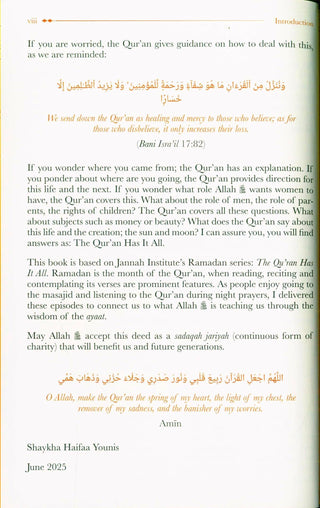 viii
Introduction
If you are worried, the Qur'an gives guidance on how to deal with this,
as we are reminded:
وَنُنَزِّلُ مِنَ ٱلْقُرْءَانِ مَا هُوَ شِفَآءٌ وَرَحْمَةٌ لِّلْمُؤْمِنِينَ ۙ وَلَا يَزِيدُ ٱلظَّٰلِمِينَ إِلَّا
خَسَارًا
We send down the Qur'an as healing and mercy to those who believe; as for
those who disbelieve, it only increases their loss.
(Bani Isra'il 17:82)
If you wonder where you came from; the Qur'an has an explanation. If
you ponder about where are you going, the Qur'an provides direction for
this life and the next. If you wonder what role Allah ﷻ wants women to
have, the Qur'an covers this. What about the role of men, the role of par-
ents, the rights of children? The Qur'an covers all these questions. What
about subjects such as money or beauty? What does the Qur'an say about
this life and the creation; the sun and moon? I can assure you, you will find
answers as: The Qur'an Has It All.
This book is based on Jannah Institute's Ramadan series: The Qu'ran Has
It All. Ramadan is the month of the Qur'an, when reading, reciting and
contemplating its verses are prominent features. As people enjoy going to
the masjid and listening to the Qur'an during night prayers, I delivered
these episodes to connect us to what Allah ﷻ is teaching us through the
wisdom of the ayaat.
May Allah ﷻ accept this deed as a sadaqah jariyah (continuous form of
charity) that will benefit us and future generations.
اللَّهُمَّ اجْعَلِ القُرْآنَ رَبِيعَ قَلْبِي وَنُورَ صَدْرِي وَجَلَاءَ حُزْنِي وَذَهَابَ هَمِّي
O Allah, make the Qur'an the spring of my heart, the light of my chest, the
remover of my sadness, and the banisher of my worries.
Amin
Shaykha Haifaa Younis
June 2025